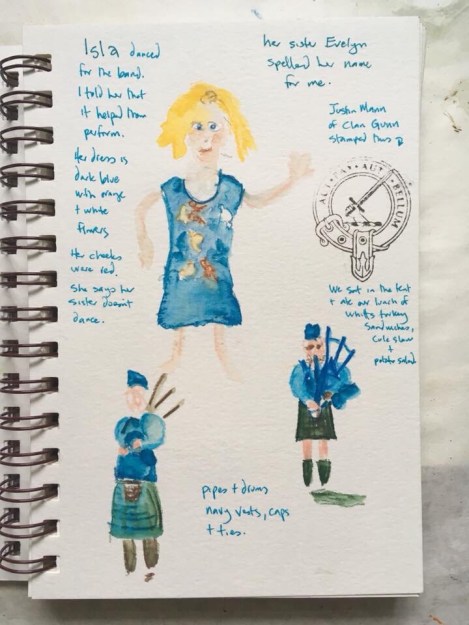 Isla danced
for the band.
I told her that
it helped them
perform.
Her dress is
dark blue
with orange
+ white
flowers
Her cheeks
were red.
She says her
sister doesn't
dance.
her sister Evelyn
spelled her name
for me.
Justin Mann
of Clan Gunn
stamped this
AUT PAX AUT BELLUM
We sat in the tent
+ ate our lunch of
turkey
sandwiches,
cole slaw
+
potato salad
pipes + drums
navy vests, caps
+ ties.